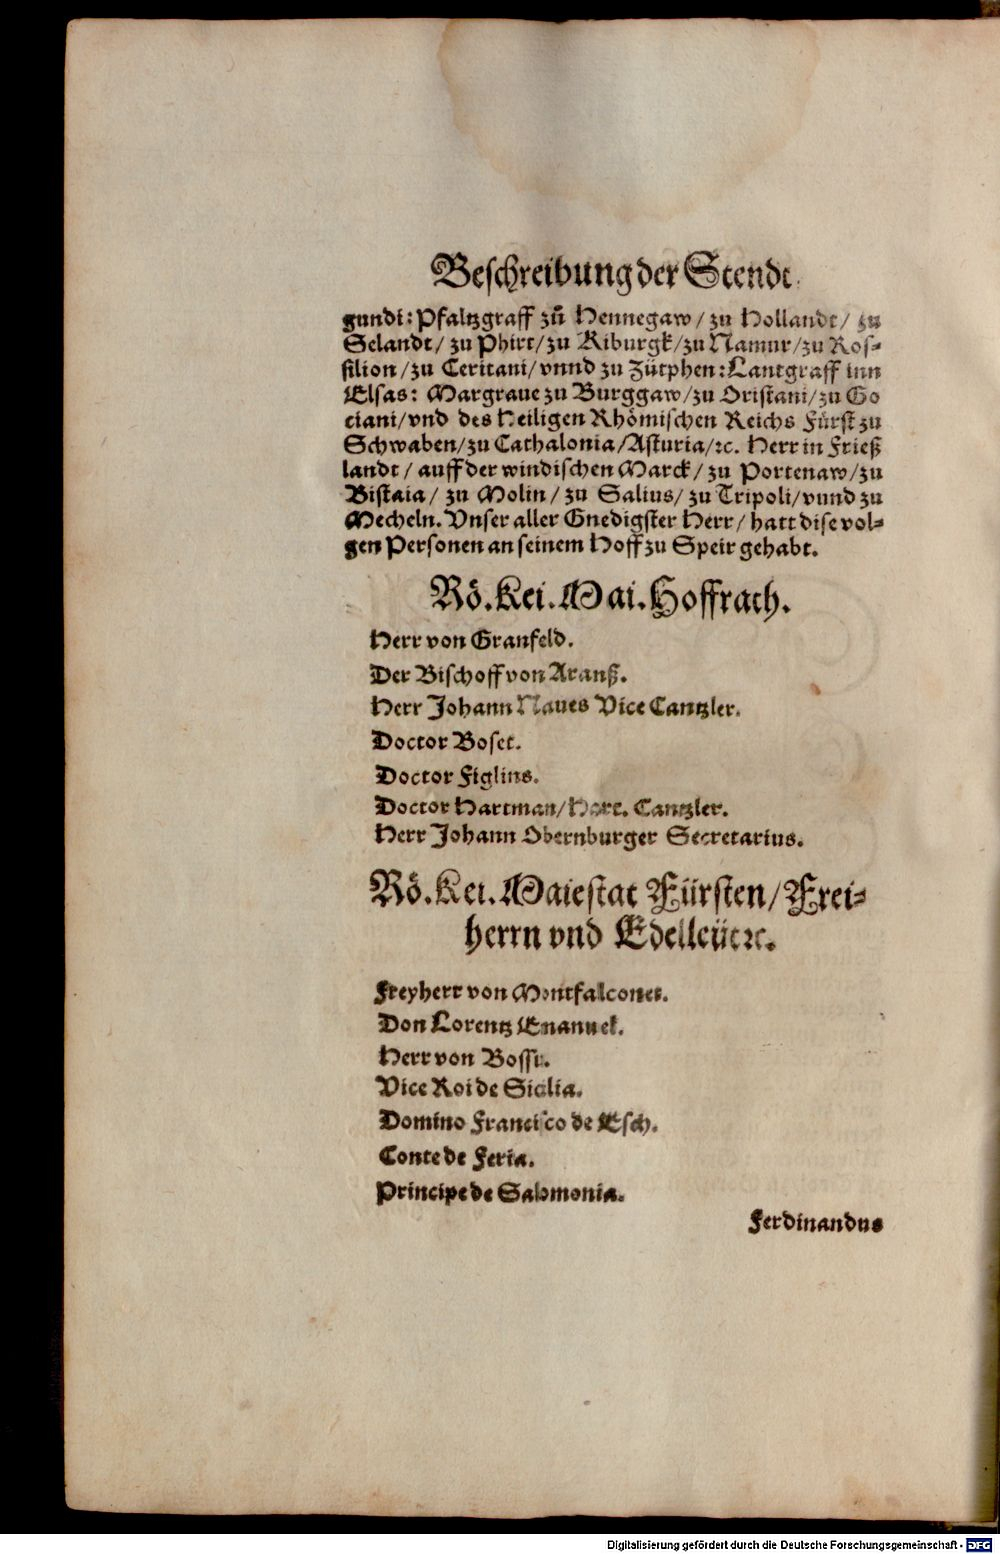 Beschreibung der Stendt
gundi: Pfaltzgraff zů Hennegaw / zu Hollandt / zu
Selandt / zu Phirt / zu Kiburgk / zu Namur / zu Ros-
silion / zu Ceritani / vnnd zu Zütphen: Lantgraff inn
Elsas: Margraue zu Burggaw / zu Oristani / zu Go
ciani / vnd des heiligen Rhömischen Reichs Fürst zu
Schwaben / zu Cathalonia / Asturia / ꝛc. Herr in Frieß
landt / auff der windischen Marck / zu Portenaw / zu
Biskaia / zu Molin / zu Salius / zu Tripoli / vnnd zu
Mecheln. Vnser aller Gnedigster Herr / hatt dise vol-
gen Personen an seinem Hoff zu Speir gehabt.
Rö. Kei. Mai. Hoffrath.
Herr von Granfeld.
Der Bischoff von Aranß.
Herr Johann Naues Vice Cantzler.
Doctor Boset.
Doctor Figlins.
Doctor Hartman / Cantzler.
Herr Johann Obernburger Secretarius.
Rö. Kei. Maiestat Fürsten / Frei-
herrn vnd Edelleüt ꝛc.
Freyherr von Montfalcones.
Don Lorentz Emanuel.
Herr von Bossu.
Vice Roi de Sicilia.
Domino Francisco de Esch.
Conte de Feria.
Principe de Salomonia.
Ferdinandus
Digitalisierung gefördert durch die Deutsche Forschungsgemeinschaft - DFG